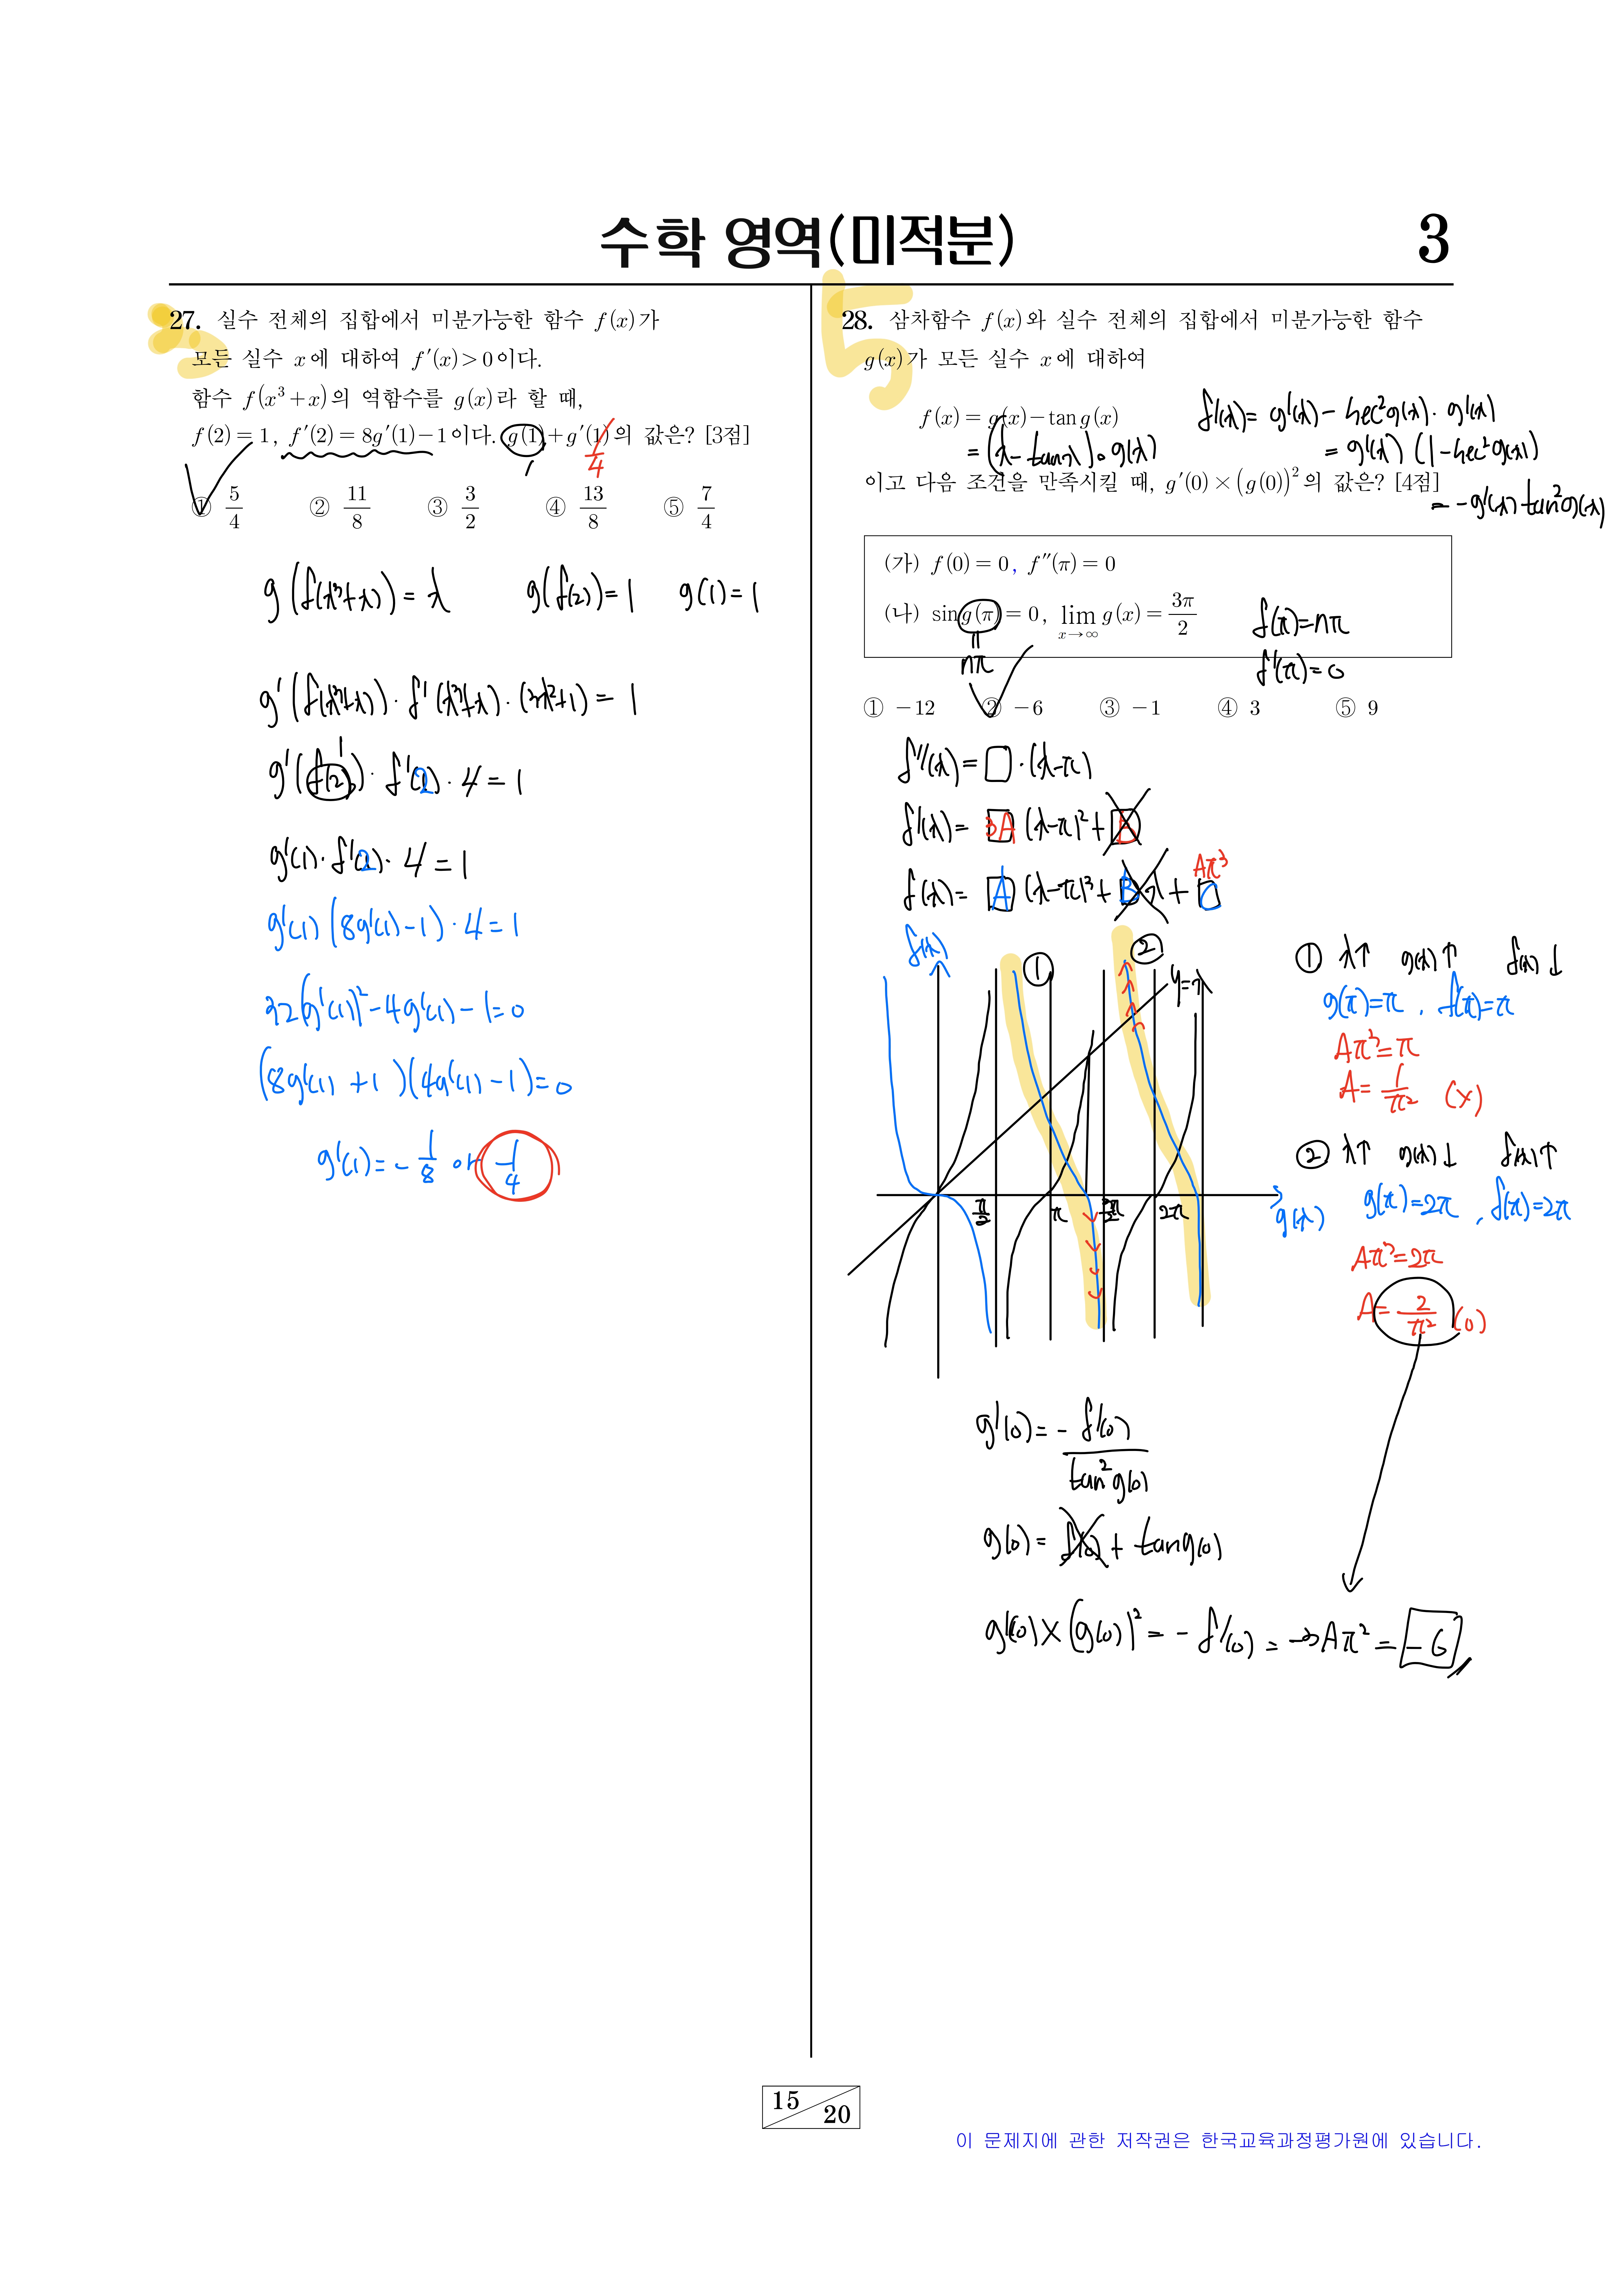 수학 영역(미적분)
3
27. 실수 전체의 집합에서 미분가능한 함수 f(x)가
모든 실수 x에 대하여 f′(x)>0이다.
함수 f(x³+x)의 역함수를 g(x)라 할 때,
f(2)=1, f′(2)=8g′(1)−1이다. g(1)+g′(1)의 값은? [3점]
1
1/4
① 5/4 ② 11/8 ③ 3/2 ④ 13/8 ⑤ 7/4
g(f(x³+x))=x g(f(2))=1 g(1)=1
g′(f(x³+x))·f′(x³+x)·(3x²+1)=1
g′(f(2))·f′(2)·4=1
1
g′(1)·f′(2)·4=1
g′(1)(8g′(1)−1)·4=1
32(g′(1))²−4g′(1)−1=0
(8g′(1)+1)(4g′(1)−1)=0
g′(1)=−1/8 or 1/4
5
28. 삼차함수 f(x)와 실수 전체의 집합에서 미분가능한 함수
g(x)가 모든 실수 x에 대하여
f(x)=g(x)−tan g(x)
=(x−tanx)∘g(x)
f′(x)=g′(x)−sec²g(x)·g′(x)
=g′(x)(1−sec²g(x))
=−g′(x)tan²g(x)
이고 다음 조건을 만족시킬 때, g′(0)×(g(0))²의 값은? [4점]
(가) f(0)=0, f″(π)=0
(나) sin g(π)=0, lim x→∞ g(x)=3π/2
nπ
f(π)=nπ
f′(π)=0
① −12 ② −6 ③ −1 ④ 3 ⑤ 9
f″(x)=□·(x−π)
f′(x)=3A(x−π)²+B
f(x)=A(x−π)³+Bx+C
Aπ³
f(x)
① ②
y=x
π/2 π 3π/2 2π
g(x)
① x↑ g(x)↑ f(x)↓
g(π)=π, f(π)=π
Aπ³=π
A=1/π² (×)
② x↑ g(x)↓ f(x)↑
g(π)=2π, f(π)=2π
Aπ³=2π
A=2/π² (○)
g′(0)=−f′(0)/tan²g(0)
g(0)=f(0)+tan g(0)
g′(0)×(g(0))²=−f′(0)=−3Aπ²=−6
15/20
이 문제지에 관한 저작권은 한국교육과정평가원에 있습니다.